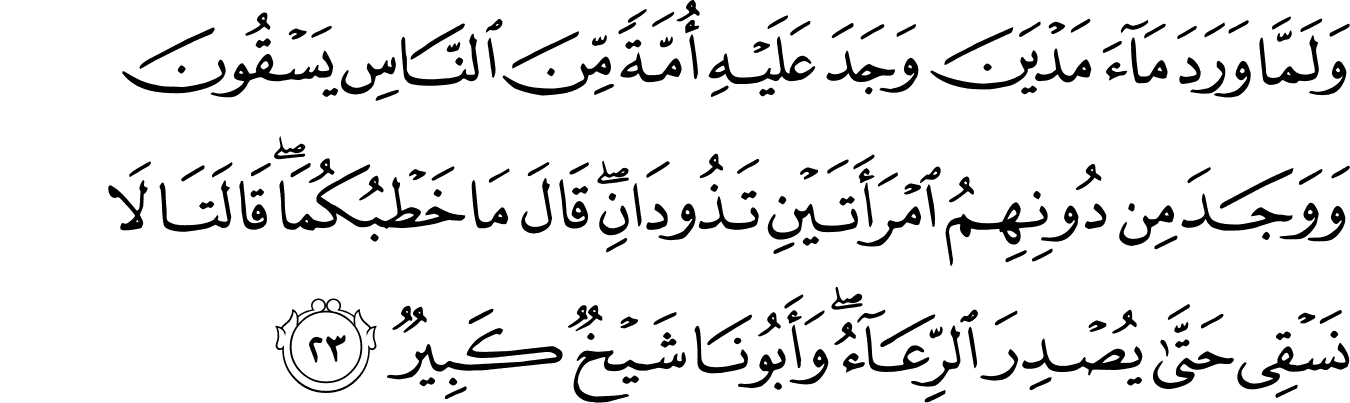 وَلَمَّا وَرَدَ مَآءَ مَدْيَنَ وَجَدَ عَلَيْهِ أُمَّةً مِّنَ ٱلنَّاسِ يَسْقُونَ
وَوَجَدَ مِن دُونِهِمُ ٱمْرَأَتَيْنِ تَذُودَانِۖ قَالَ مَا خَطْبُكُمَاۖ قَالَتَا لَا
نَسْقِى حَتَّىٰ يُصْدِرَ ٱلرِّعَآءُۖ وَأَبُونَا شَيْخٌ كَبِيرٌ ٢٣